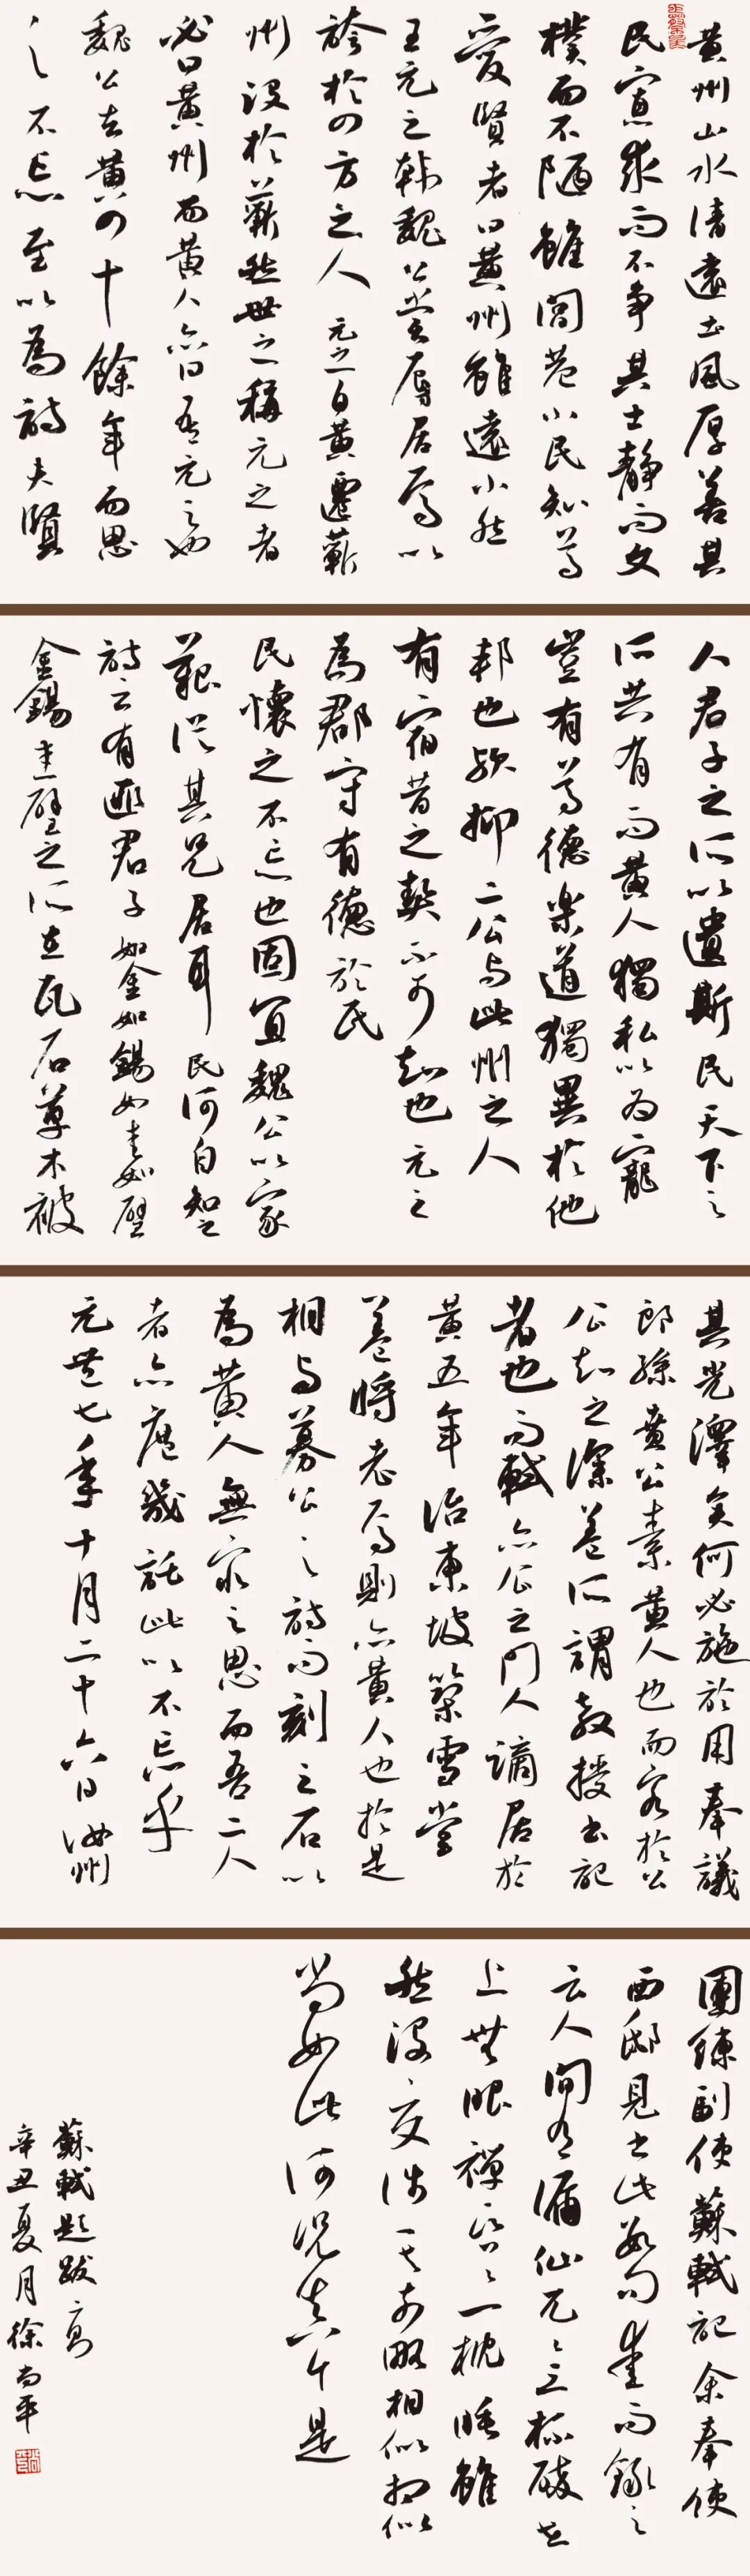 黄州山水清遠土風厚善其
民寡求而不争其士静而文
樸而不陋雖閭巷小民知尊
愛賢者曰黄州雖遠小然
王元之韓魏公嘗辱居焉以
誇於四方之人元之自黄遷蘄
州没於蘄然世之稱元之者
必曰黄州而黄人亦曰吾元之也
魏公去黄四十餘年而思
之不忘至以為詩夫賢
人君子之所以遺斯民天下之
所共有而黄人獨私以為寵
豈有尊德樂道獨異於他
邦也歟抑二公與此州之人
有宿昔之契不可知也元之
為郡守有德於民
民懷之不忘也固宜魏公以家
艱從其兄居耳民何自知之
詩云有匪君子如金如錫如圭如璧
金錫圭璧之所在瓦石草木被
其光澤矣何必施於用奉議
郎孫賁公素黄人也而客於公
公知之深蓋所謂教授書記
者也而軾亦公之門人謫居於
黄五年治東坡築雪堂
蓋將老焉則亦黄人也於是
相與募公之詩而刻之石以
為黄人無窮之思而吾二人
者亦庶幾託此以不忘乎
元豐七年十月二十六日汝州
團練副使蘇軾記余奉使
西邸見書此數句愛而録之
云人間有漏仙兀兀三杯醉世
上無眼禪昏昏一枕睡雖
然没交涉其奈略相似相似
尚如此何況真个是
蘇軾題跋二
辛丑夏月徐尚平